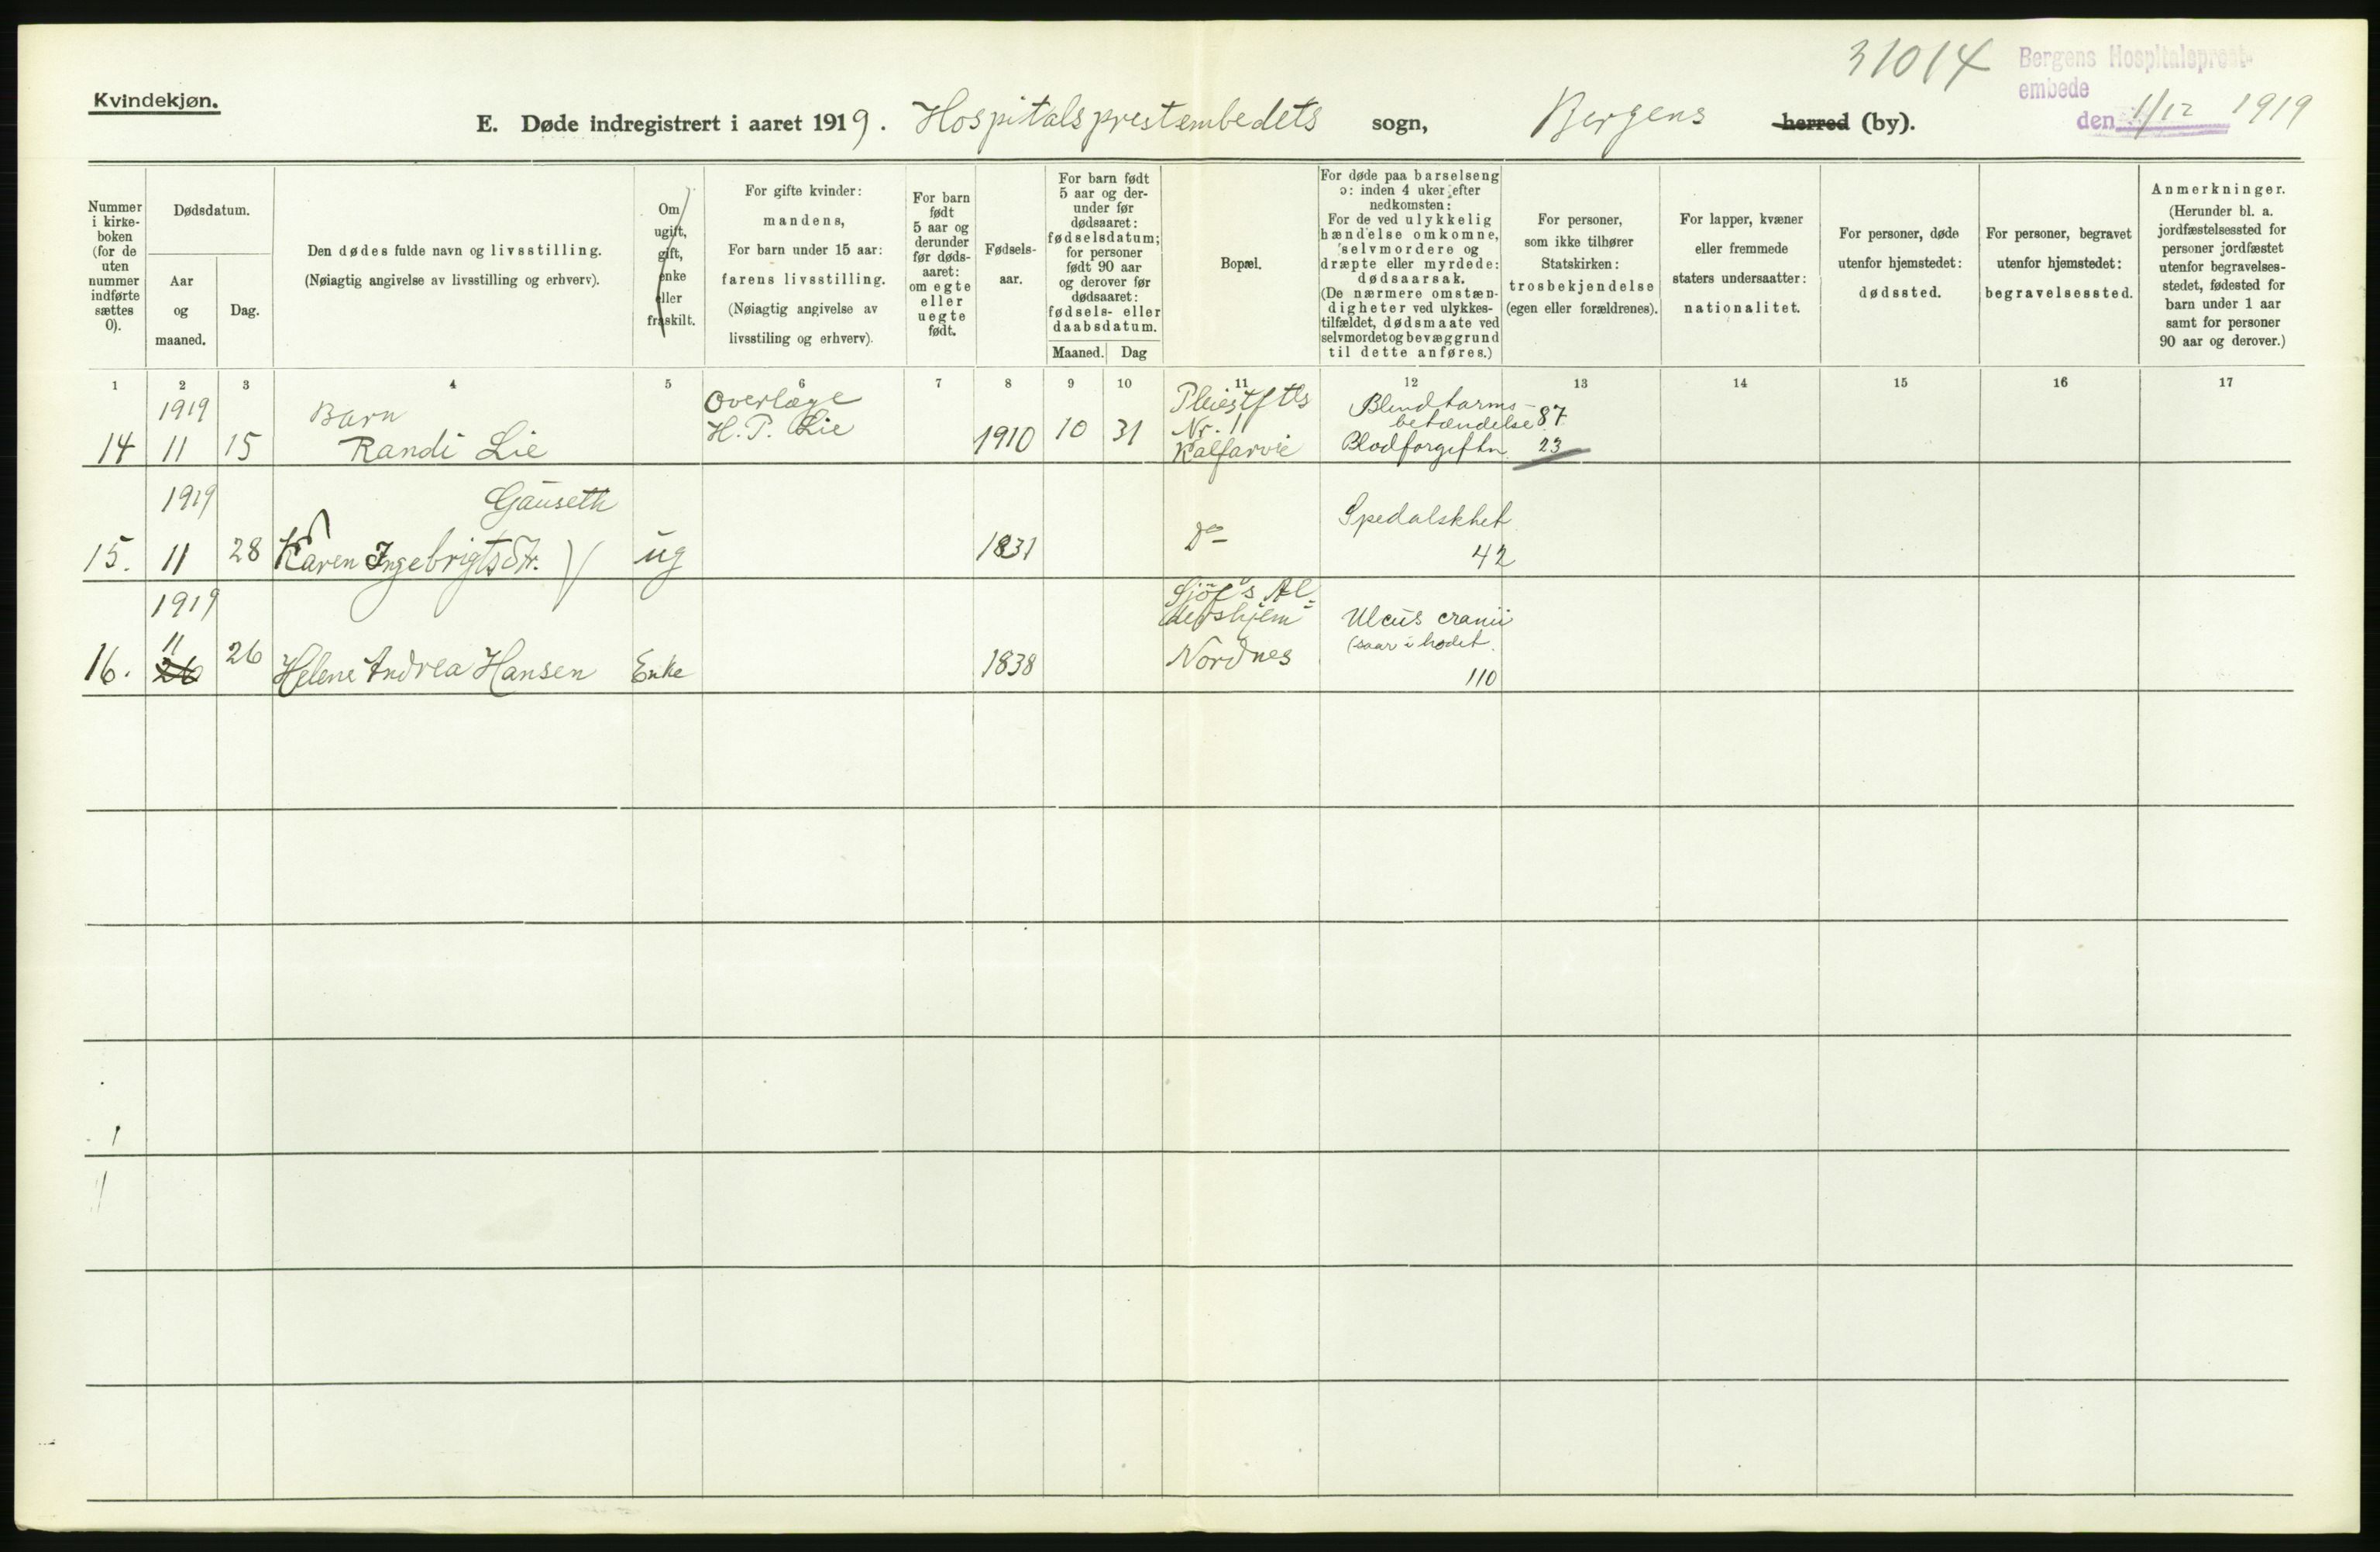 Kvindekjøn.
31014
Bergens Hospitalsprest-
embede
den 1/12 1919
E. Døde indregistrert i aaret 1919. Hospitalsprestembedets sogn, Bergens herred (by).
Nummer
i kirke-
boken
(for de
uten
nummer
indførte
sættes
0).
Dødsdatum.
Aar
og
maaned.
Dag.
Den dødes fulde navn og livsstilling.
(Nøiagtig angivelse av livsstilling og erhverv).
Om
ugift,
gift,
enke
eller
fraskilt.
For gifte kvinder:
mandens,
For barn under 15 aar:
farens livsstilling.
(Nøiagtig angivelse av
livsstiling og erhverv).
For barn
født
5 aar og
derunder
før døds-
aaret:
om egte
eller
uegte
født.
Fødsels-
aar.
For barn født
5 aar og der-
under før
dødsaaret:
fødselsdatum;
for personer
født 90 aar
og derover før
dødsaaret:
fødsels- eller
daabsdatum.
Maaned. Dag
Bopæl.
For døde paa barselseng
ɔ: inden 4 uker efter
nedkomsten:
For de ved ulykkelig
hændelse omkomne,
selvmordere og
dræpte eller myrdede:
dødsaarsak.
(De nærmere omstæn-
digheter ved ulykkes-
tilfældet, dødsmaate ved
selvmordet og bevæggrund
til dette anføres.)
For personer,
som ikke tilhører
Statskirken:
trosbekjendelse
(egen eller forældrenes).
For lapper, kvæner
eller fremmede
staters undersaatter:
nationalitet.
For personer, døde
utenfor hjemstedet:
dødssted.
For personer, begravet
utenfor hjemstedet:
begravelsessted.
Anmerkninger.
(Herunder bl. a.
jordfæstelsessted for
personer jordfæstet
utenfor begravelses-
stedet, fødested for
barn under 1 aar
samt for personer
90 aar og derover.)
1 2 3 4 5 6 7 8 9 10 11 12 13 14 15 16 17
1919 Barn Overlæge Pleiestftls Blindtarms-
H. P. Lie Nr. 1 betændelse 87
14 11 15 Randi Lie 1910 10 31 Kalfarvie Blodforgiftn. 23
1919 Gauseth Spedalskhet
15. 11 28 Karen Ingebrigtsdtr. ug 1831 Do 42
1919 Sjöf's Al-
dershjem Ulcus cranii
11 (saar i hodet.
16. 26 26 Helene Andrea Hansen Enke 1838 Nordnes 110